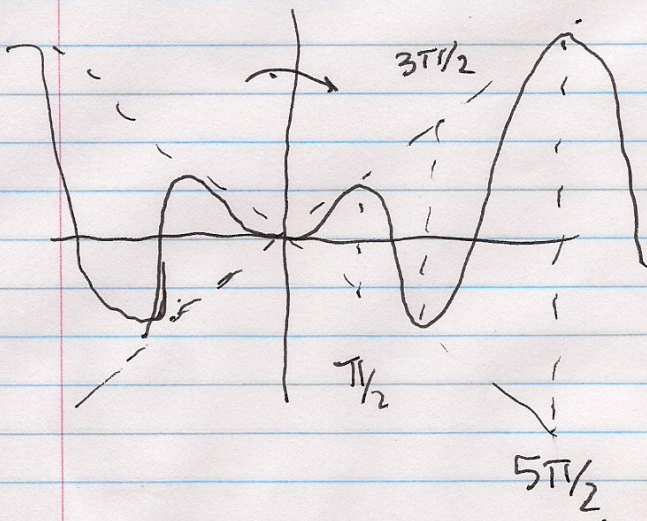 3π/2
π/2
5π/2